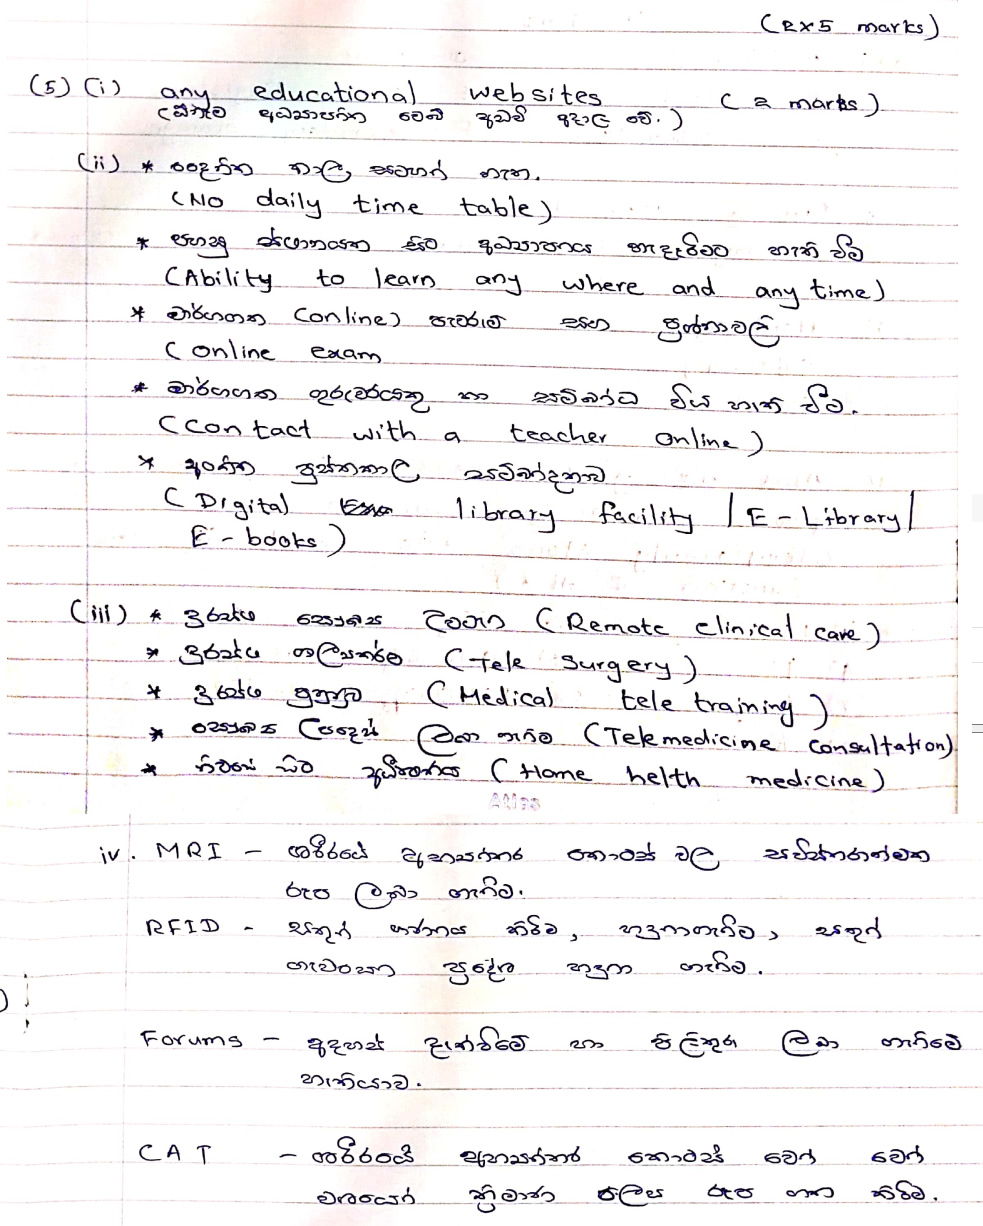 (2×5 marks)
(5) (i) any educational websites (2 marks)
(ඕනෑම අධ්‍යාපනික වෙබ් අඩවි අදාල වේ.)
(ii) * දෛනික කාල සටහන් නැත.
(No daily time table)
* පහසු ස්ථානයක සිට අධ්‍යාපනය හැදෑරීමට හැකි වීම
(Ability to learn any where and any time)
* මාර්ගගත (online) පැවරුම් සහ ප්‍රශ්නාවලි
(online exam
* මාර්ගගත ගුරුවරයකු හා සම්බන්ධ විය හැකි වීම.
(Contact with a teacher online)
* අංකිත පුස්තකාල සම්බන්දතාව
(Digital library facility | E-Library |
E-books)
(iii) * දුරස්ථ සෞඛ්‍ය (Remote clinical care)
* දුරස්ථ ශල්‍යකර්ම (Tele Surgery)
* දුරස්ථ පුහුණුව (Medical tele training)
* සෞඛ්‍ය උපදෙස් ලබා ගැනීම (Telemedicine consultation)
* නිවසේ සිට (Home helth medicine)
Atlas
iv. MRI - ශරීරයේ අභ්‍යන්තර කොටස් වල සවිස්තරාත්මක
රූප ලබා ගැනීම.
RFID - සතුන් ගණනය කිරීම, හදුනාගැනීම, සතුන්
ගැවසෙන ප්‍රදේශ හදුනා ගැනීම.
Forums - අදහස් දැක්වීමේ හා පිළිතුරු ලබා ගැනීමේ
හැකියාව.
CAT - ශරීරයේ අභ්‍යන්තර කොටස් වෙන් වෙන්
වශයෙන් ත්‍රිමාණ ලෙස රූප ගත කිරීම.